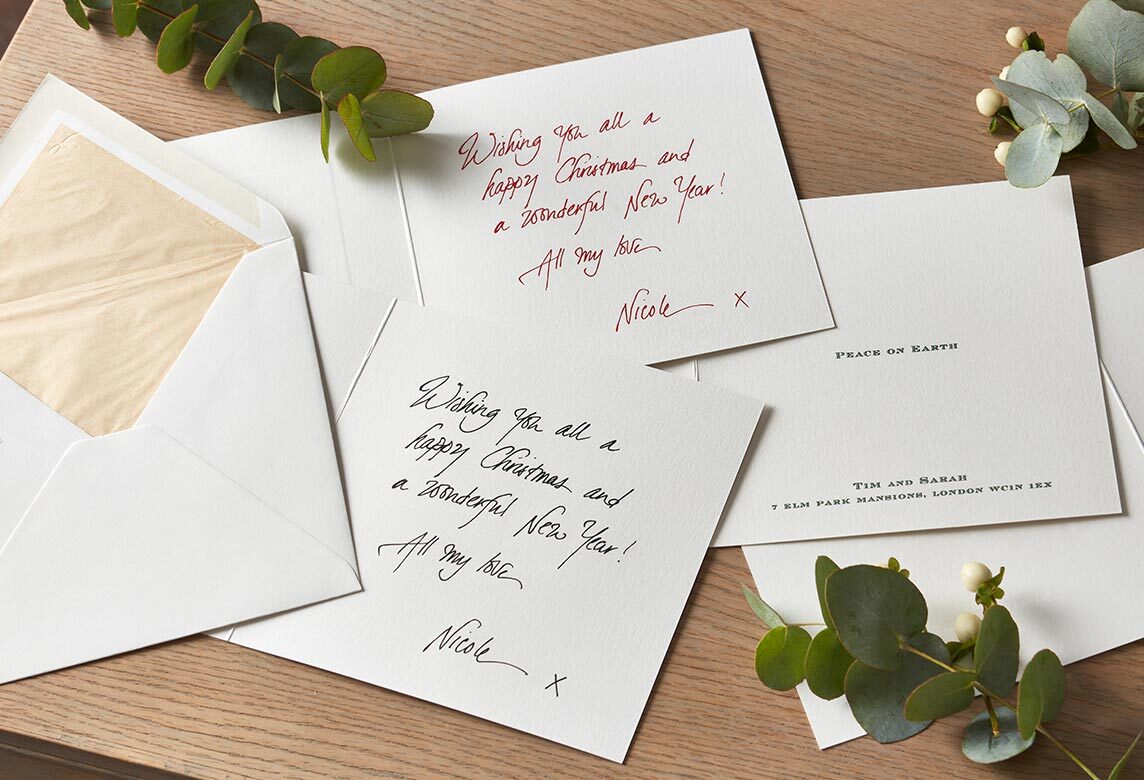 Wishing you all a
happy Christmas and
a wonderful New Year!
All my love
Nicole x
Peace on Earth
Tim and Sarah
7 Elm Park Mansions, London WC1N 1EX
Wishing you all a
happy Christmas and
a wonderful New Year!
All my love
Nicole
x